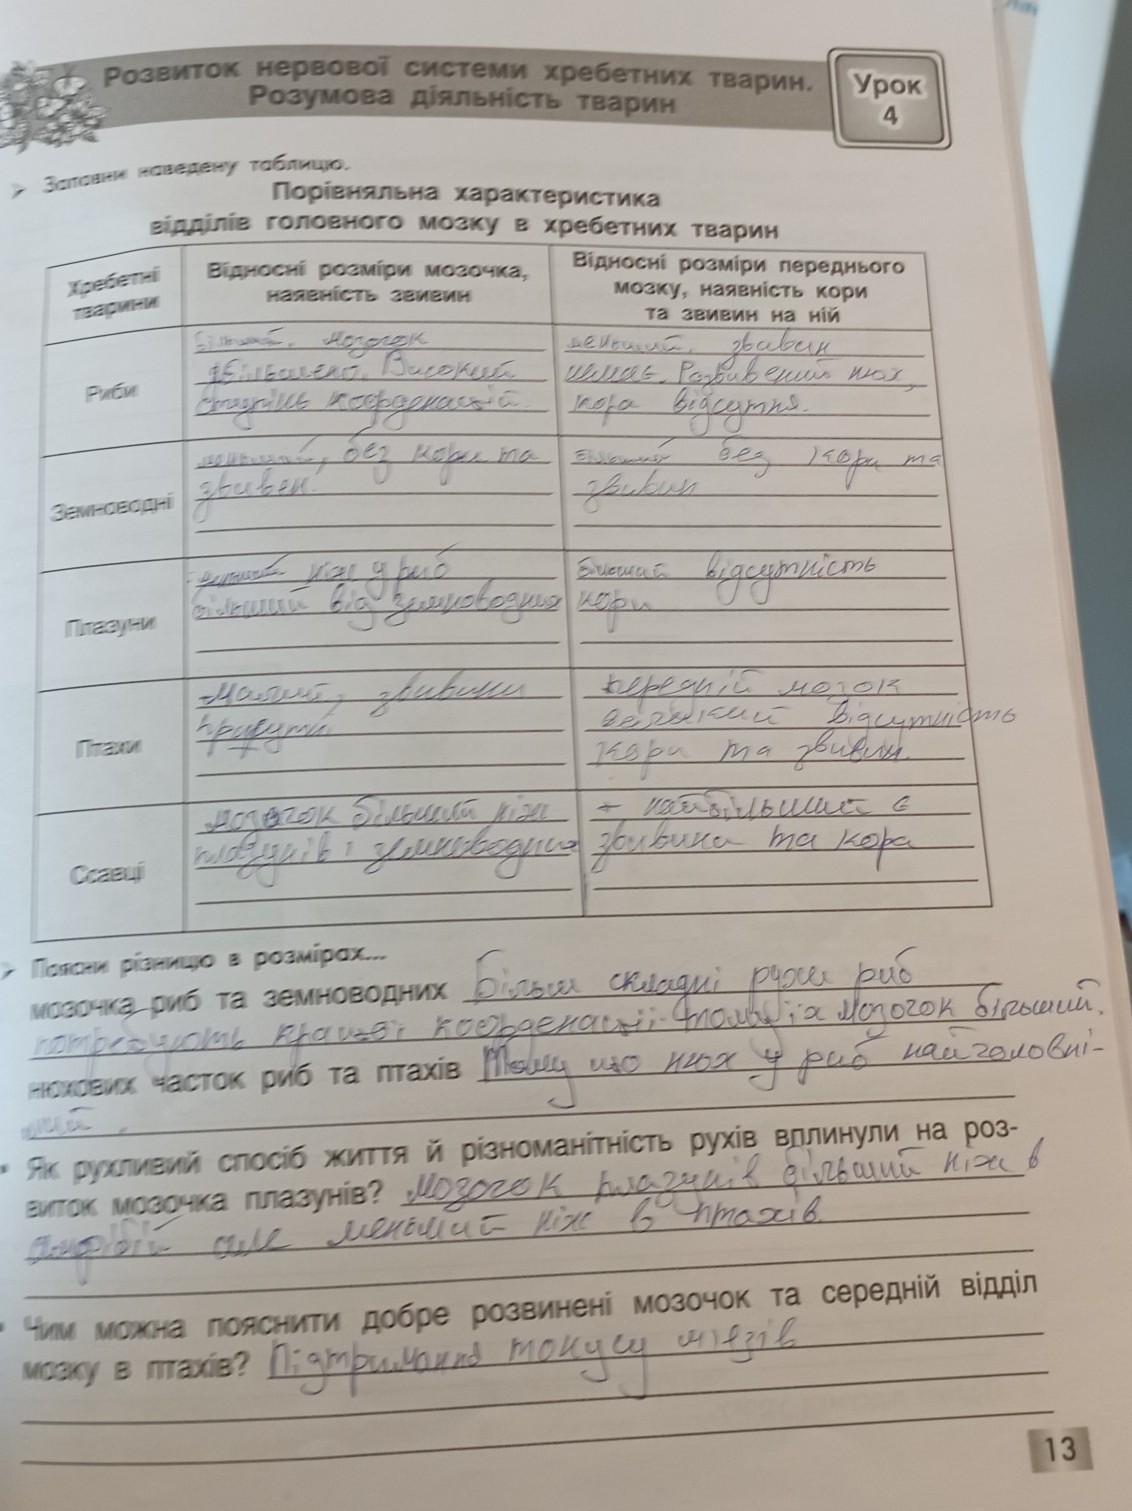 Розвиток нервової системи хребетних тварин.
Розумова діяльність тварин
Урок
4
Заповни наведену таблицю.
Порівняльна характеристика
відділів головного мозку в хребетних тварин
Хребетні
тварини
Відносні розміри мозочка,
наявність звивин
Відносні розміри переднього
мозку, наявність кори
та звивин на ній
Риби
більший. мозочок
збільшено. Високий
ступінь коорденацій.
меньший. звивин
немає. Розвивений нюх,
кора відсутня.
Земноводні
меньший, без кори та
звивен.
більший без кори та
звивин
Плазуни
ніж у риб
більший від земноводних
більший відсутність
кори
Птахи
Малий, звивини
присутні
передній мозок
великий відсутність
кори та звивин.
Ссавці
мозочок більший ніж
плазунів і земноводних
+ найбільший є
звивина та кора
Поясни різницю в розмірах...
мозочка риб та земноводних Більш складні рухи риб
потребують кращої коорденації. тому їх мозочок більший.
нюхових часток риб та птахів Тому що нюх у риб найголовні-
ший.
Як рухливий спосіб життя й різноманітність рухів вплинули на роз-
виток мозочка плазунів? Мозочок плазунів більший ніж в
амфібій але меньший ніж в птахів.
Чим можна пояснити добре розвинені мозочок та середній відділ
мозку в птахів? Підтримання тонусу мязів
13